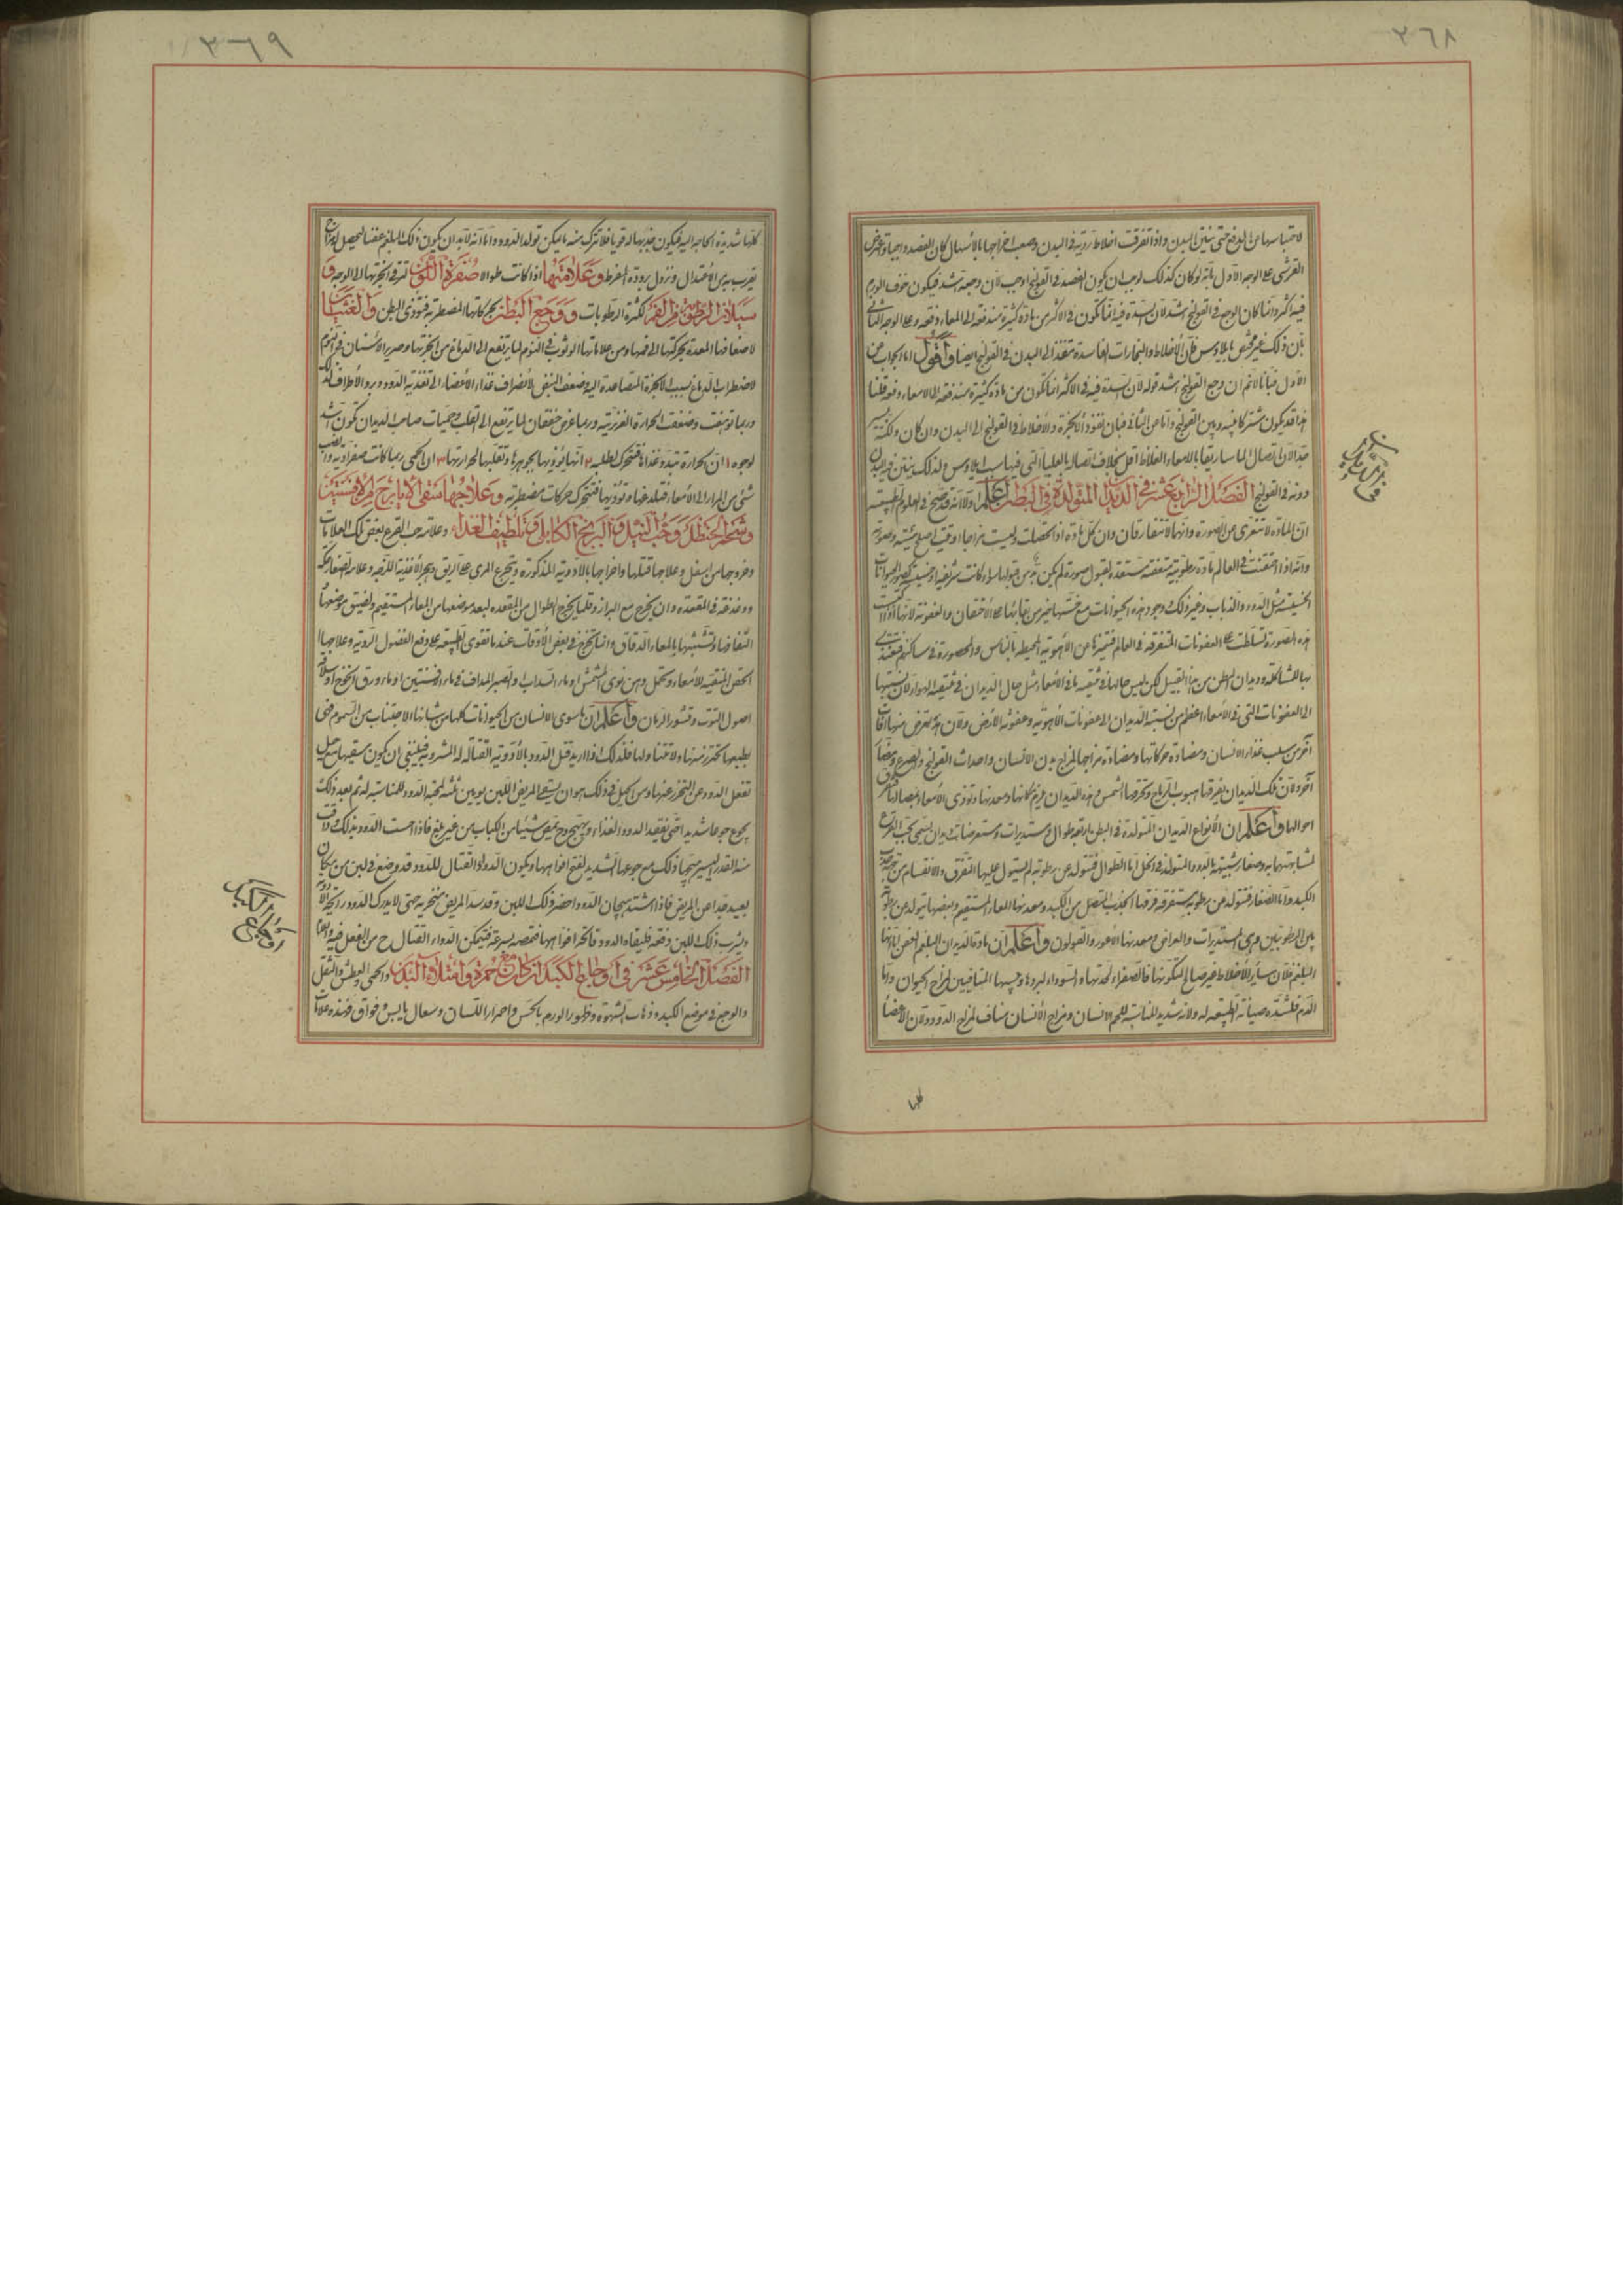 ٣٦٨
لاحتباسها عن الدفع حتى ينتن البدن واذا تفرقت اخلاط ردية في البدن وصعب اخراجها بالاسهال كان الفصد واجبا واعترض
القرشى على الوجه الاول بانه لو كان كذلك لوجب ان يكون الفصد في القولنج اوجب لان وجعه اشد فيكون خوف الورم
فيه اكثر وانما كان الوجع في القولنج اشد لان السدة فيه انما تكون في الاكثر من مادة كثيرة مندفعة الى المعاء دفعة وعلى الوجه الثاني
بان ذلك غير مختص بايلاوس فان الاخلاط والبخارات الفاسدة تنفذ الى البدن في القولنج ايضا واقول اما الجواب عن
الاول فبانا لا نم ان وجع القولنج اشد قوله لان السدة فيه في الاكثر انما تكون من مادة كثيرة مندفعة الى الامعاء دفعة قلنا
هذا قد يكون مشتركا فيه وبين القولنج واما عن الثاني فبان نفوذ الابخرة والاخلاط في القولنج الى البدن وان كان ولكنه يسير
جدا لان اتصال الماساريقا بالامعاء الغلاظ اقل بخلاف اتصاله بالعليا التي فيها سبب ايلاوس ولذلك ينتن فيه البدن
دونه في القولنج الفصل الرابع عشر في الديدان المتولدة في البطن اعلم اولا انه قد صح في العلوم الطبيعية
ان المادة لا تتعرى عن الصورة وانهما لا تتفارقان وان كل مادة اذا تحصلت وليست مزاجا اوفيت اصلح هيئته وصورته
وانه اذا تعفنت في العالم مادة رطوبية متعفنة مستعدة لقبول صورة لم يكن بد من قبولها سواء كانت شريفة او خسيسة كصور الحيوانات
الخسيسة مثل الدود والذباب وغير ذلك ووجود هذه الحيوانات مع خستها خير من بقائها على الاحتقان والعفونة لانها اذا اكتسبت
هذه الصورة تسلطت على العفونات المتفرقة في العالم فتميزها عن الاهوية المحيطة بالناس والمحصورة في مساكنهم فتغتذى
بها للمشاكلة وديدان البطن من هذا القبيل لكن ليس حالها في تنقية ما في الامعاء مثل حال الديدان في تنقية الهواء لان نسبتها
الى العفونات التي في الامعاء اعظم من نسبة الديدان الى عفونات الاهوية وعفونة الارض ولان هذه تعرض منها آفات
اخرى من سلب غذاء الانسان ومضادة حركاتها ومضادة مزاجها لمزاج بدن الانسان واحداث القولنج والصرع ومضار
اخر ولان تلك الديدان يفرقها هبوب الرياح وتحرقها الشمس وهذه الديدان يلزم مكانها ومعدنها وتوذى الامعاء
احوالها واعلم ان الانواع الديدان المتولدة في البطن اربعة طوال ومستديرات ومستعرضات وديدان يسمى بحب القرع
لمشابهتها به وصغار شبيهة بالدود المتولد في الخل اما الطوال فتتولد عن رطوبة لم يستول عليها التفرق والانقسام من جهة جذب
الكبد واما الصغار فتتولد عن رطوبة متفرقة فرقها الجذب المتصل من الكبد ومعدنها المعاء المستقيم وبعضها يتولد عن رطوبة
بين الرطوبتين وهى المستديرات والعراض ومعدنها الاعور والقولون واعلم ان مادة الديدان البلغم العفن لانها
البلغم فلان سائر الاخلاط غير صالح لتكونها فالصفراء لحدتها والسوداء لبردها ويبسها المنافيين لمزاج الحيوان واما
الدم فلشدة صيانة الطبيعة له ولانه شديد المناسبة للحم الانسان ومزاج الانسان مناف لمزاج الدود ولان الاعضا
كلها
٣٦٩
كلها شديدة الحاجة اليه فيكون جذبها له قويا فلا تترك منه ما يمكن تولد الدود واما انه لا بد ان يكون ذلك البلغم عفنا ليحصل له مزاج
يقرب به من الاعتدال وتزول برودته المفرطة وعلامتها اذا كانت طوالا صفرة اللون لترقى ابخرتها الى الوجه و
سيلان الرطوبة من الفم لكثرة الرطوبات ووجع البطن بحركاتها المضطربة فتؤذى البطن والغثيان
لاضعافها المعدة بحركتها الى فمها ومن علاماتها الوثوب في النوم لما يرتفع الى الدماغ من ابخرتها وصرير الاسنان في النوم
لاضطراب الدماغ بسبب الابخرة المتصاعدة اليه وضعف النبض لانصراف غذاء الاعضاء الى تغذية الدود وبرد الاطراف لذلك
وربما توهنت وضعفت الحرارة الغريزية وربما عرض خفقان لما يرتفع الى القلب وحميات صاحب الديدان تكون اشد
لوجوه ١ ان الحرارة تبدد غذاها فتتحرك لطلبه ٢ انها يؤذيها بجوهرها وتقلبها لحرارتها ٣ ان الحمى ربما كانت صفراوية وانصب
شئ من المرار الى الامعاء فتلدغها وتؤذيها فتتحرك حركات مضطربة وعلاجها سقى الايارج والافسنتين
وشحم الحنظل وحب النيل والبرنج الكابلى وتلطيف الغذاء وعلامة حب القرع بعض تلك العلامات
وخروجها من اسفل وعلاجها قتلها واخراجها بالادوية المذكورة وتجرع المرى على الريق وهجر الاغذية اللزجة وعلامة الصغار حكة
ودغدغة في المقعدة وان يخرج مع البراز وقلما يخرج الطوال من المقعدة لبعد موضعها من المعاء المستقيم ولضيق موضعها
التفافها وتشبثها بالمعاء الدقاق وانما تخرج في بعض الاوقات عندما تقوى الطبيعة على دفع الفضول الردية وعلاجها
الحقن المنقية للامعاء وتحمل دهن نوى المشمش او ماء السذاب والصبر المداف في ماء افسنتين او ماء ورق الخوخ او سلاقة
اصول التوت وقشور الرمان واعلم ان ما سوى الانسان من الحيوانات كلها من شانها الاجتناب من السموم فهى
بطبعها تحترز منها ولا تتناولها فلذلك اذا اريد قتل الدود بالادوية القتالة له المشروبة فينبغى ان يكون سقيها مع حيل
تغفل الدود عن التحرز عنها ومن الحيل في ذلك هو ان يسقى المريض اللبن يومين ثلثة لمحبة الدود للمناسبة له ثم بعد ذلك
يجوع جوعا شديدا حتى تفقد الدود الغذاء ويهيج ويمص شيئا من الكباب من غير بلع فاذا احست الدود بذلك وذاقت
منه القدر اليسير هيجها ذلك مع جوعها الشديد لفتح افواهها ويكون الدواء القتال للدود قد وضع في لبن من مكان
بعيد جدا عن المريض فاذا اشتد هيجان الدود احضر ذلك اللبن وقد سد المريض منخريه حتى لا يدرك الدود رائحة الادوية
ويشرب ذلك اللبن دفعة فليقاه الدود فاتحة افواهها فتمصه بسرعة فيتمكن الدواء القتال ح من الفعل فيه
الفصل الخامس عشر في اوجاع الكبد ان كان مع حمرة وامتلاء البدن والحمى والعطش والثقل
والوجع في موضع الكبد وذهاب الشهوة وظهور الورم بالحس واحمرار اللسان وسعال يابس وفواق فهذه علامات
اوجاع الكبد